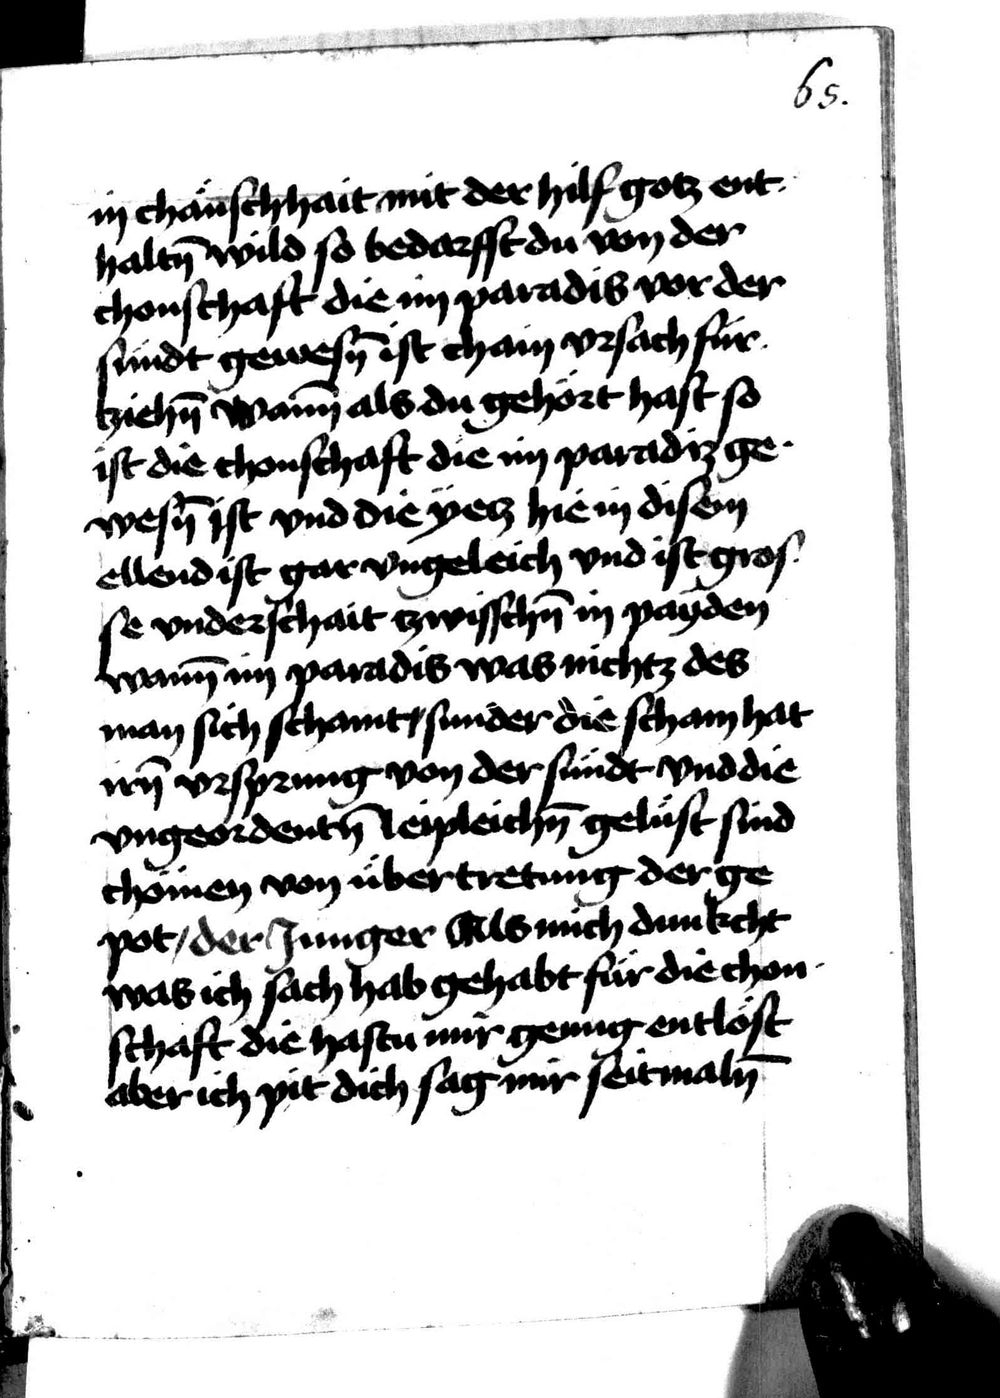 65.
in chäuschhait mit der hilf gotz ent-
haltn̄ wild so bedarfst du von der
chonschaft die im paradis vor der
sündt gewesn̄ ist chain vrsach für-
tziehn̄ wann̄ als du gehört hast so
ist die chonschaft die im paradiz ge-
wesn̄ ist vnd die yetz hie in disem
ellend ist gar vngeleich vnd ist gros-
se vnderschait tzwisschn̄ in payden
wann̄ im paradis was nichtz des
man sich schamt / sunder die scham hat
irn̄ vrsprung von der sündt vnd die
vngeordentn̄ leipleichn̄ gelüst sind
chömen von übertretung der ge
pot / der Junger Als mich dunkcht
was ich sach hab gehabt für die chon-
schaft die hastu mir genug entlöst
aber ich pit dich sag mir seitmaln̄